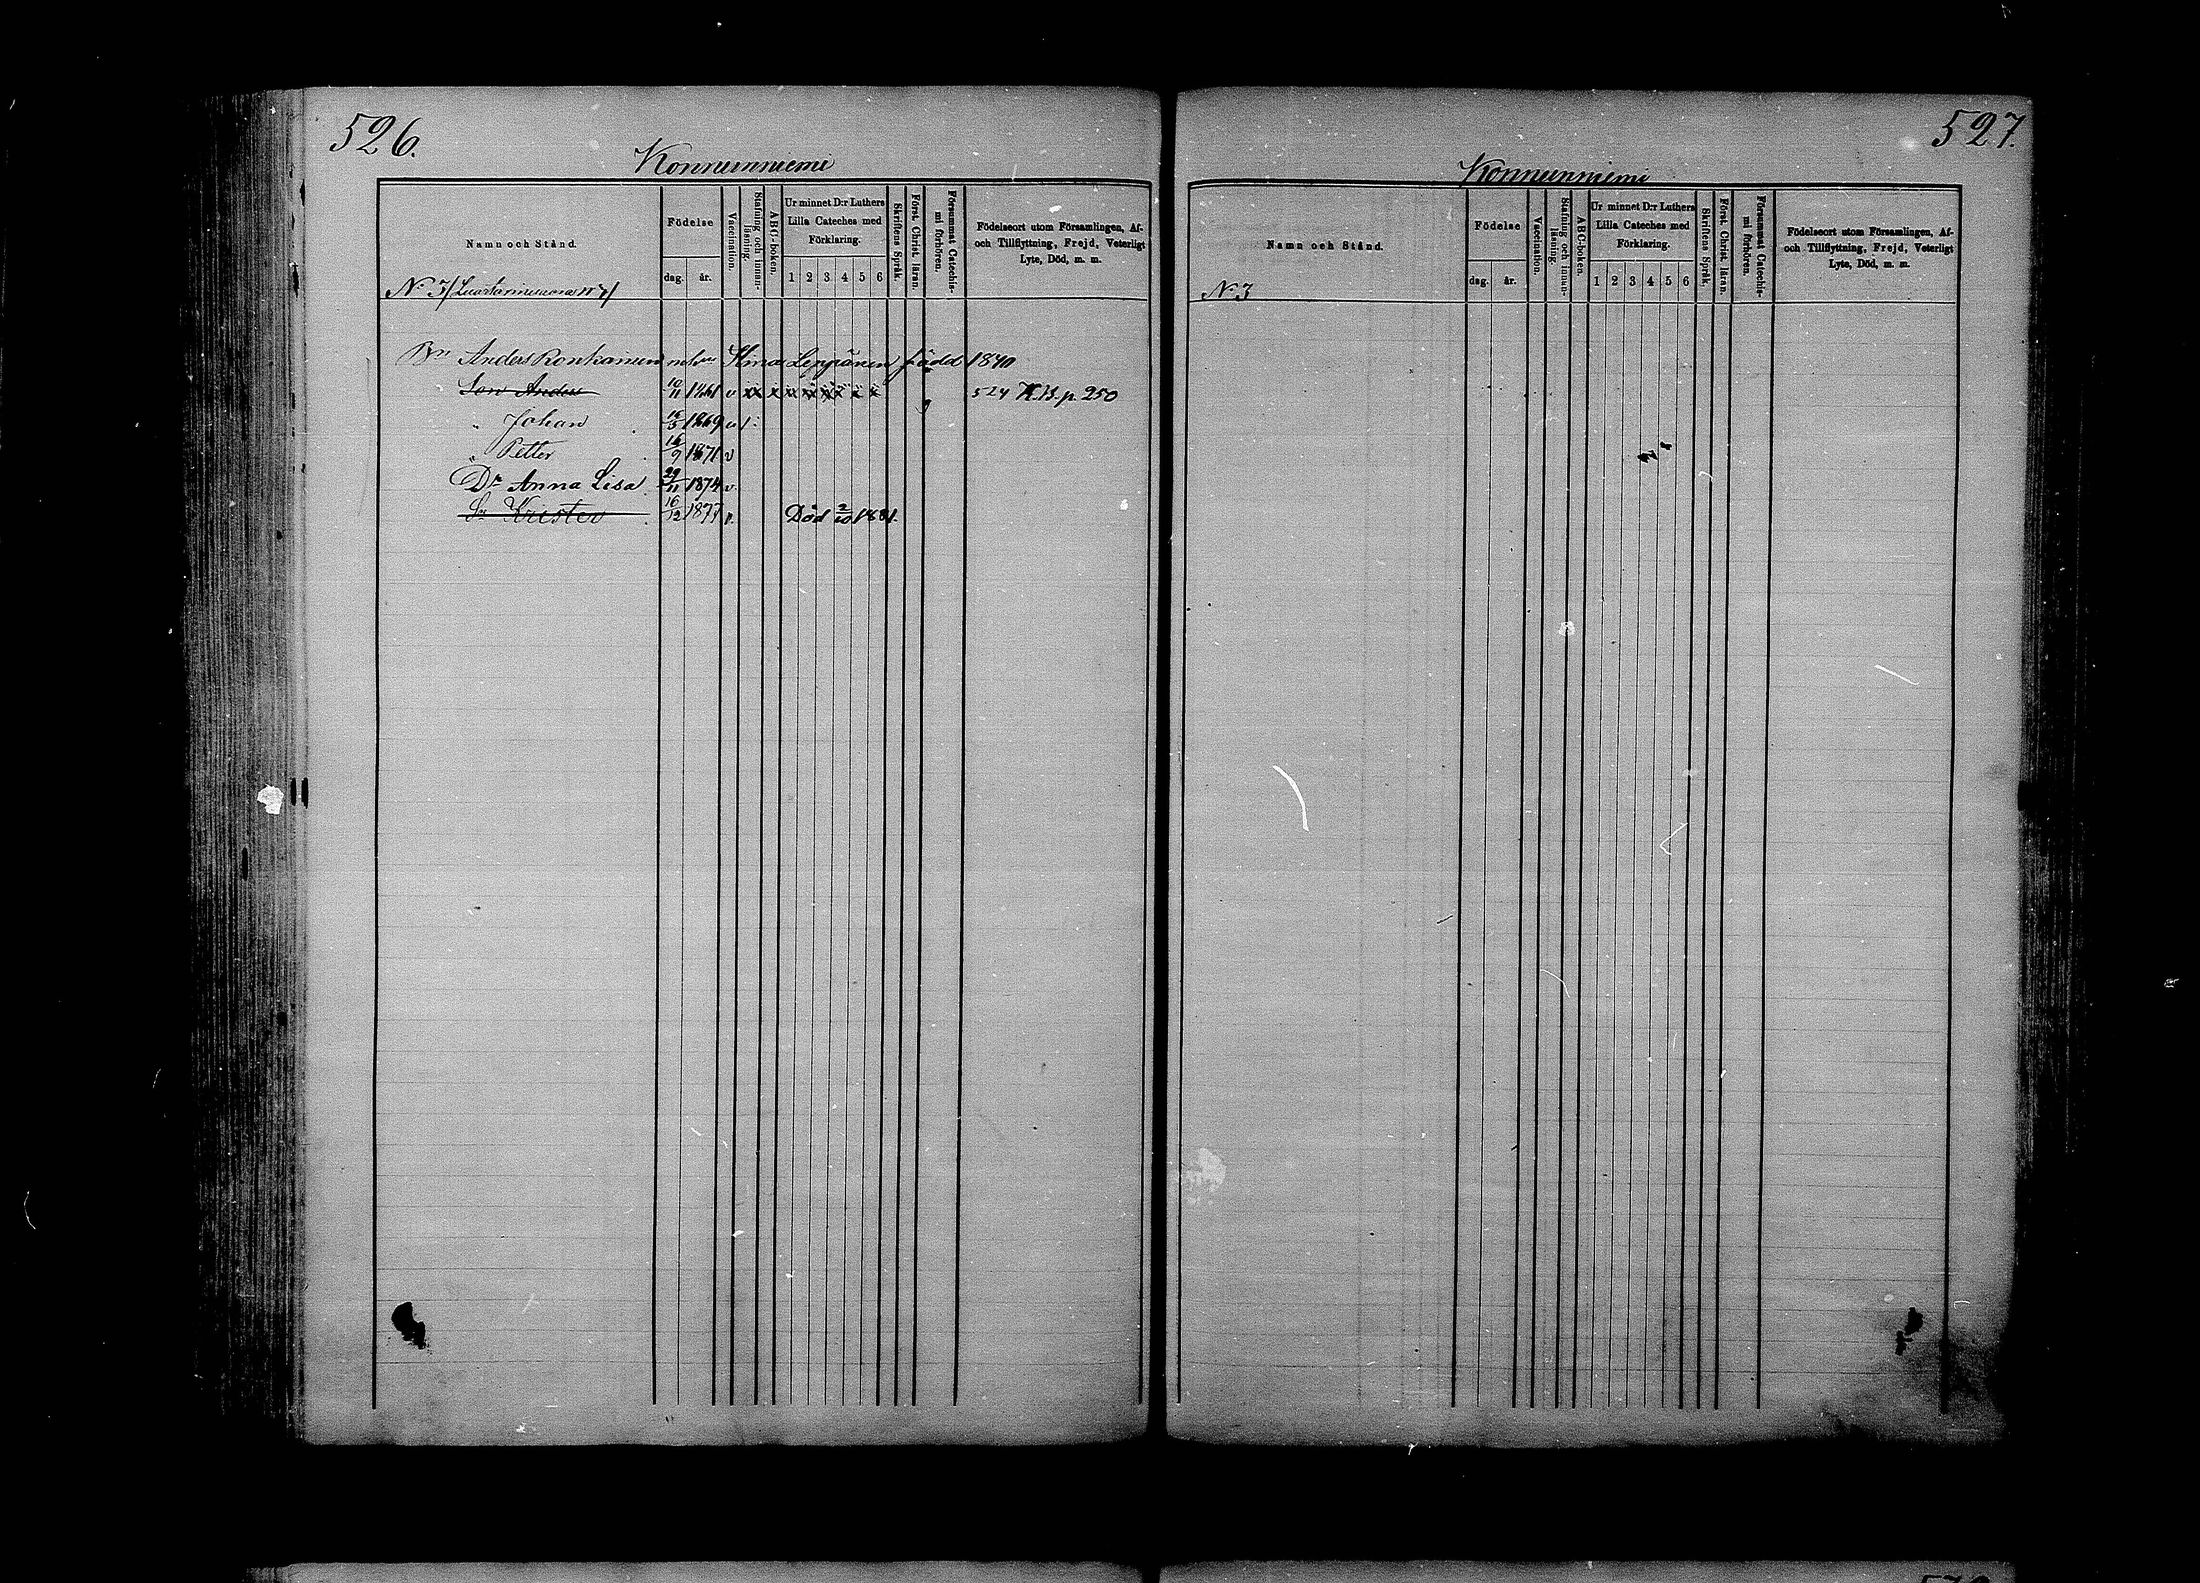 526.
Konnunniemi
Namn och Stånd.
Födelse
dag. år.
Vaccination.
Stafning och innan-läsning.
ABC-boken.
Ur minnet D:r Luthers
Lilla Cateches med
Förklaring.
1 2 3 4 5 6
Skriftens Språk.
Först. Christ. läran.
Försummat Catechis-mi förhören.
Födelseort utom Församlingen, Af-
och Tillflyttning, Frejd, Veterligt
Lyte, Död, m. m.
N:o 3
Bn Anders Ronkainen Leppänen född 1840
Son Anders 10/11 1861 v x x x x x x x x x 524 K.B. p. 250
" Johan 1869 v
" Petter 16/9 1871 v
Dr Anna Lisa 29/11 1874 v
Sn Krister 16/12 1877 v. Död 2/10 1881.
527.
Konnunniemi
Namn och Stånd.
Födelse
dag. år.
Vaccination.
Stafning och innan-läsning.
ABC-boken.
Ur minnet D:r Luthers
Lilla Cateches med
Förklaring.
1 2 3 4 5 6
Skriftens Språk.
Först. Christ. läran.
Försummat Catechis-mi förhören.
Födelseort utom Församlingen, Af-
och Tillflyttning, Frejd, Veterligt
Lyte, Död, m. m.
N:o 3